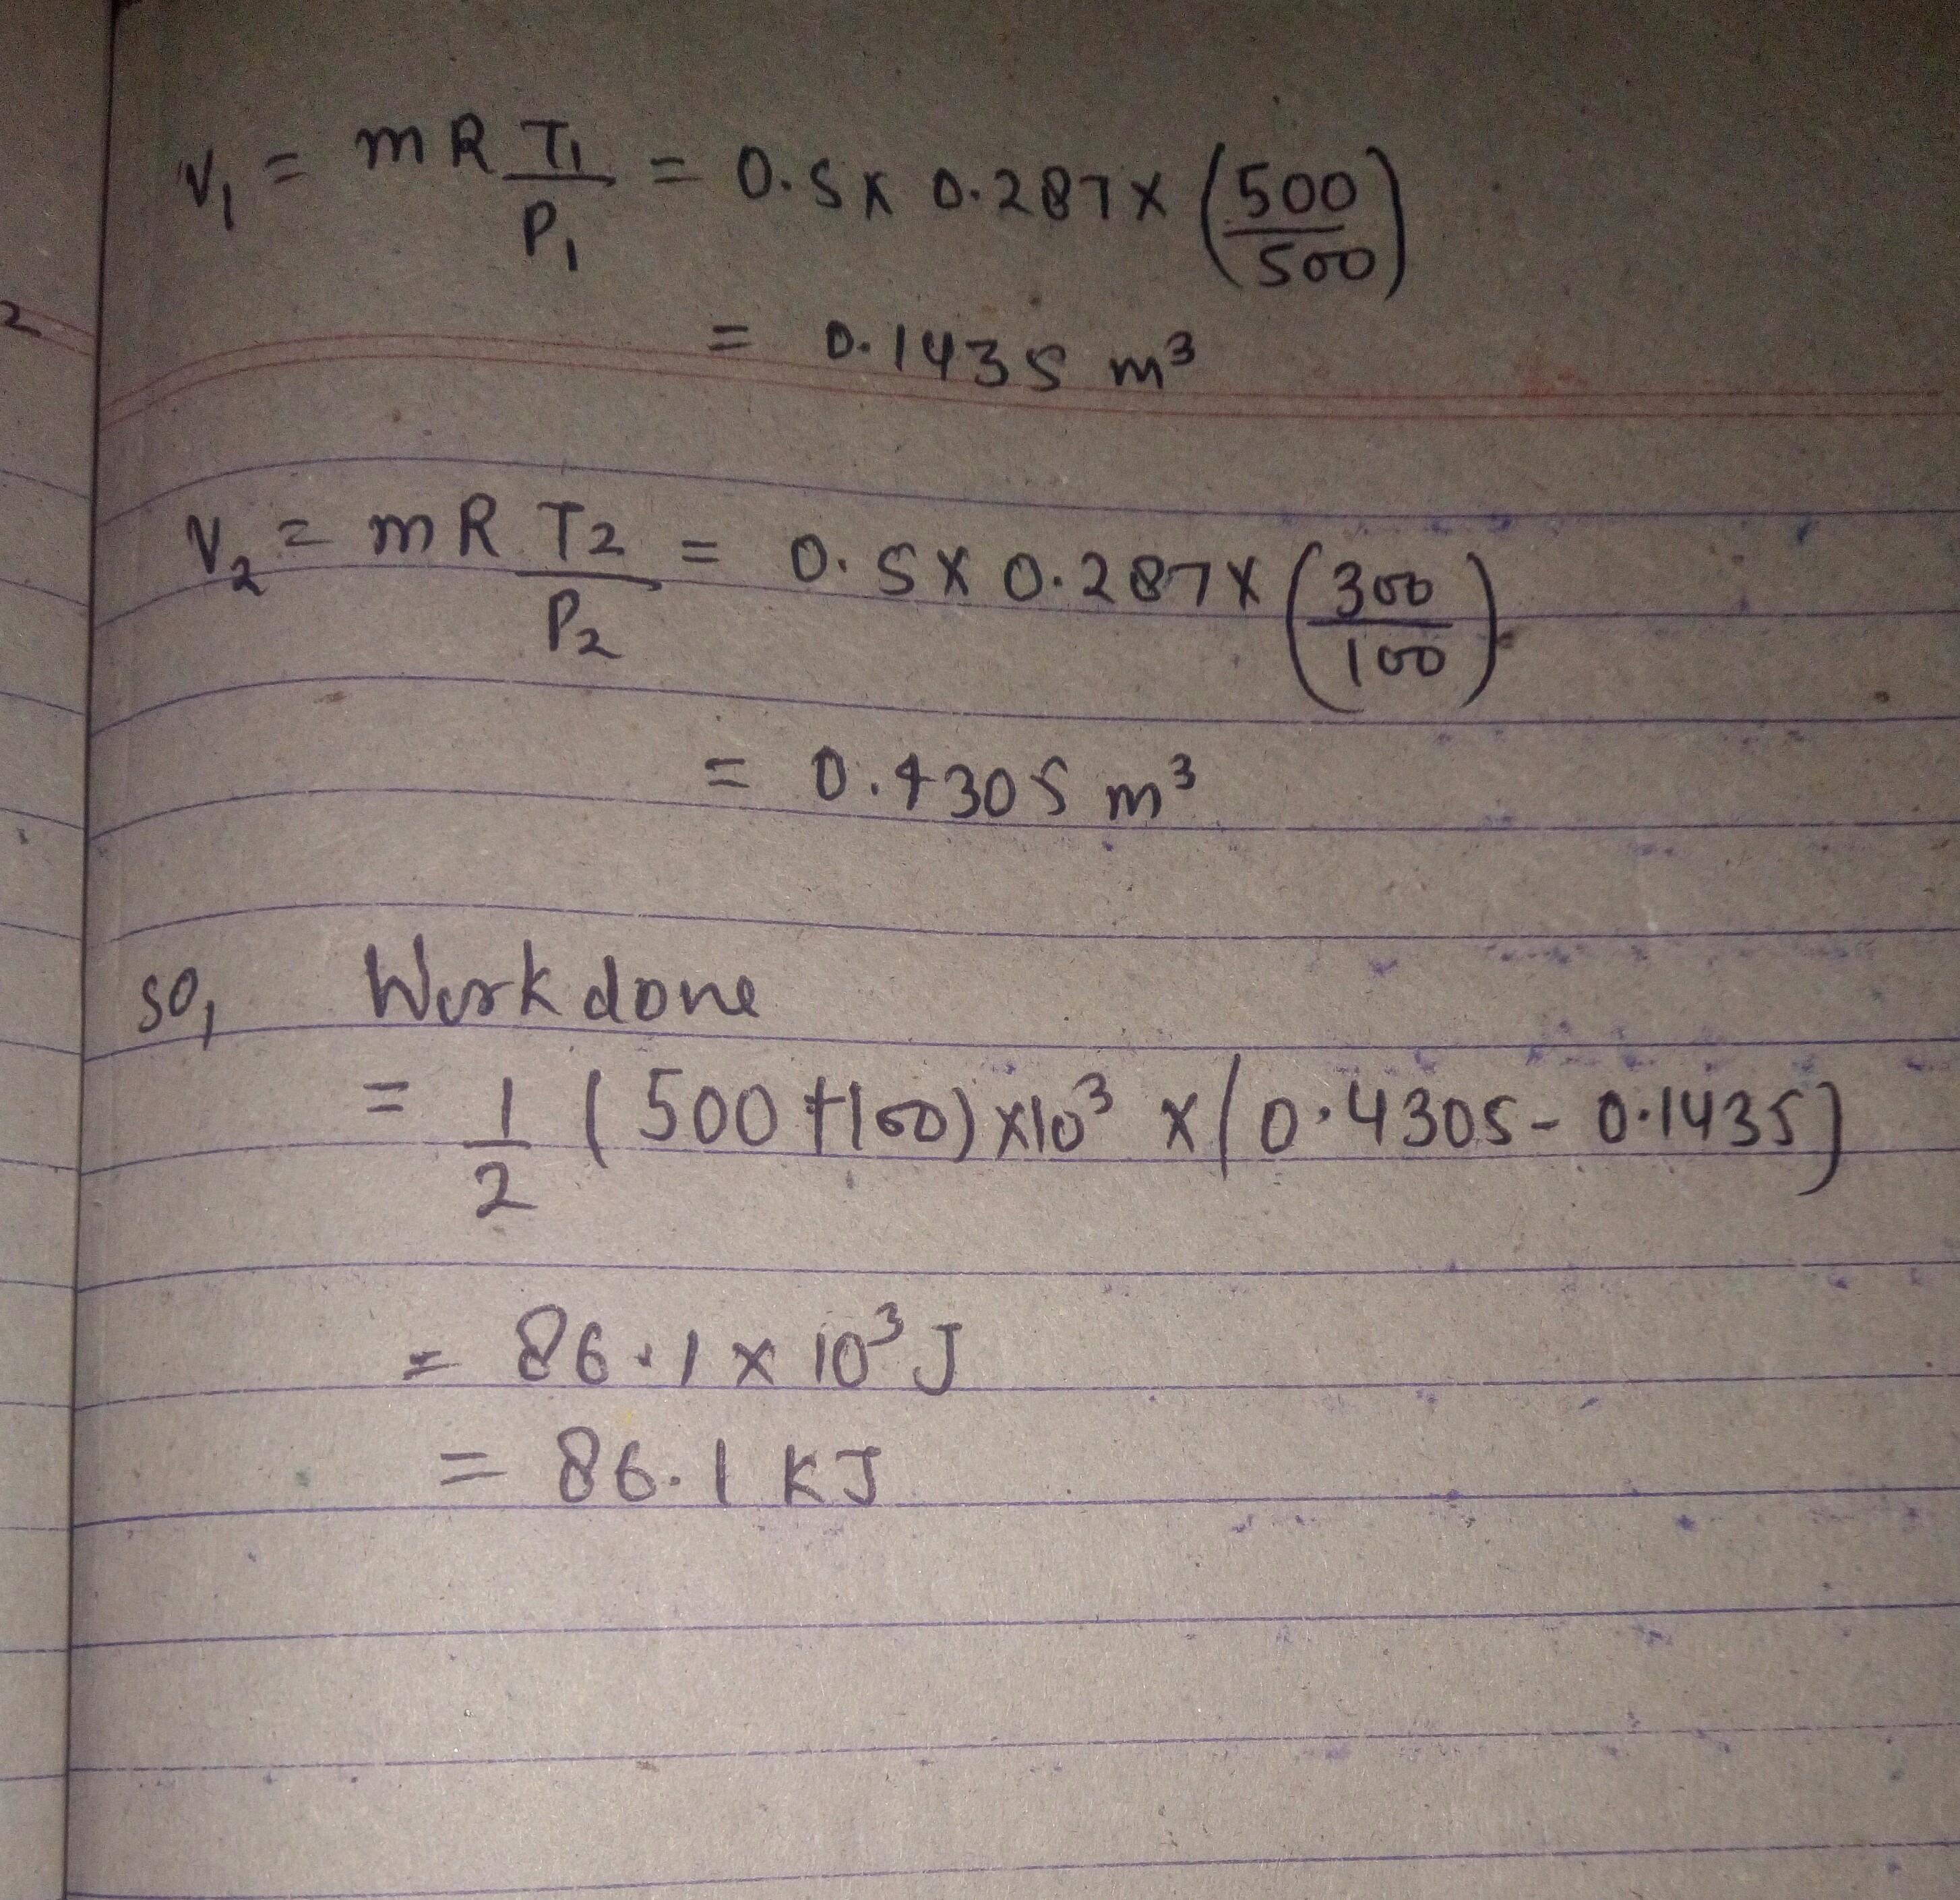 V₁ = mR T₁/P₁ = 0.5 × 0.287 × (500/500)
2
= 0.1435 m³
V₂ = mR T₂/P₂ = 0.5 × 0.287 × (300/100)
= 0.4305 m³
so, Work done
= 1/2 (500 + 100) × 10³ × (0.4305 - 0.1435)
= 86.1 × 10³ J
= 86.1 KJ